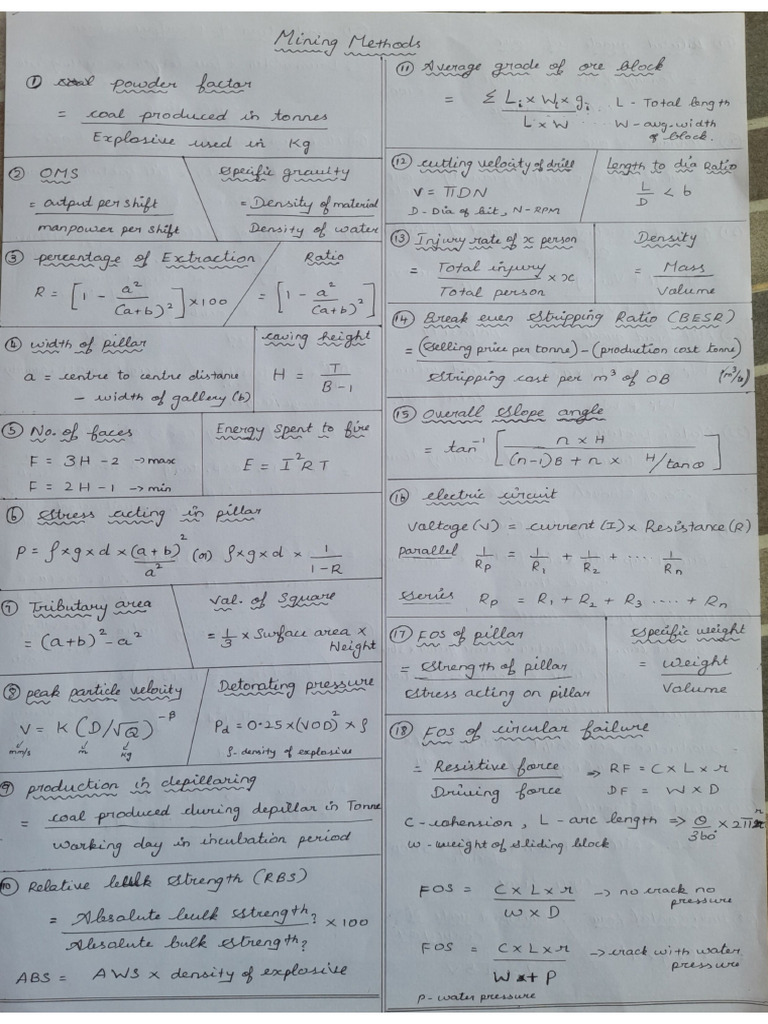 Mining Methods
① powder factor
= coal produced in tonnes / Explosive used in Kg
② OMS
= output per shift / manpower per shift
Specific gravity
= Density of material / Density of water
③ percentage of Extraction
R = [1 - a² / (a+b)²] × 100
Ratio
= [1 - a² / (a+b)²]
④ width of pillar
a = centre to centre distance
- width of gallery (b)
caving height
H = T / B-1
⑤ No. of faces
F = 3H - 2 → max
F = 2H - 1 → min
Energy spent to fire
E = I²RT
⑥ Stress acting in pillar
P = ρ×g×d × (a+b)² / a² (or) ρ×g×d × 1 / 1-R
⑦ Tributary area
= (a+b)² - a²
Val. of Square
= 1/3 × Surface area ×
Height
⑧ peak particle velocity
V = K (D/√Q)^-β
mm/s m kg
Detorating pressure
Pd = 0.25 × (VOD)² × ρ
ρ - density of explosive
⑨ production in depillaring
= coal produced during depillar in Tonne / working day in incubation period
⑩ Relative bulk Strength (RBS)
= Absolute bulk strength? / Absolute bulk strength? × 100
ABS = AWS × density of explosive
⑪ Average grade of ore block
= Σ Li × Wi × gi / L × W
L - Total length
W - avg-width
of block.
⑫ cutting velocity of drill
V = πDN
D - Dia of bit, N - RPM
Length to dia Ratio
L / D < 6
⑬ Injury rate of x person
= Total injury / Total person × x
Density
= Mass / Volume
⑭ Break even Stripping Ratio (BESR)
= (Selling price per tonne) - (production cost tonne) / Stripping cost per m³ of OB (m³/t)
⑮ Overall Slope angle
= tan⁻¹ [n × H / (n-1)B + n × H/tanα]
⑯ electric circuit
Valtage (V) = current (I) × Resistance (R)
parallel 1/Rp = 1/R1 + 1/R2 + .... 1/Rn
Series Rp = R1 + R2 + R3 .... + Rn
⑰ FOS of pillar
= Strength of pillar / Stress acting on pillar
Specific weight
= weight / Volume
⑱ FOS of circular failure
= Resistive force / Driving force
⇒ RF = C × L × r
DF = W × D
C - cohension, L - arc length ⇒ θ / 360° × 2πr
W - weight of sliding block
FOS = C × L × r / W × D → no crack no
pressure
FOS = C × L × r / W + P → crack with water
pressure
P - water pressure